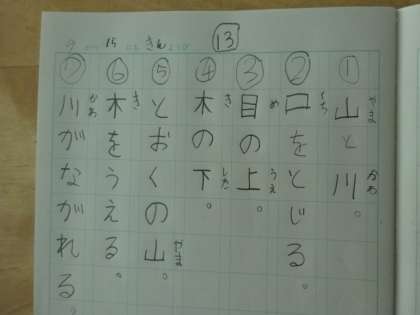 9 15 きん
⑬
① 山と川。
やま かわ
② 口をとじる。
くち
③ 目の上。
め うえ
④ 木の下。
き した
⑤ とおくの山。
やま
⑥ 木をうえる。
き
⑦ 川がながれる。
かわ